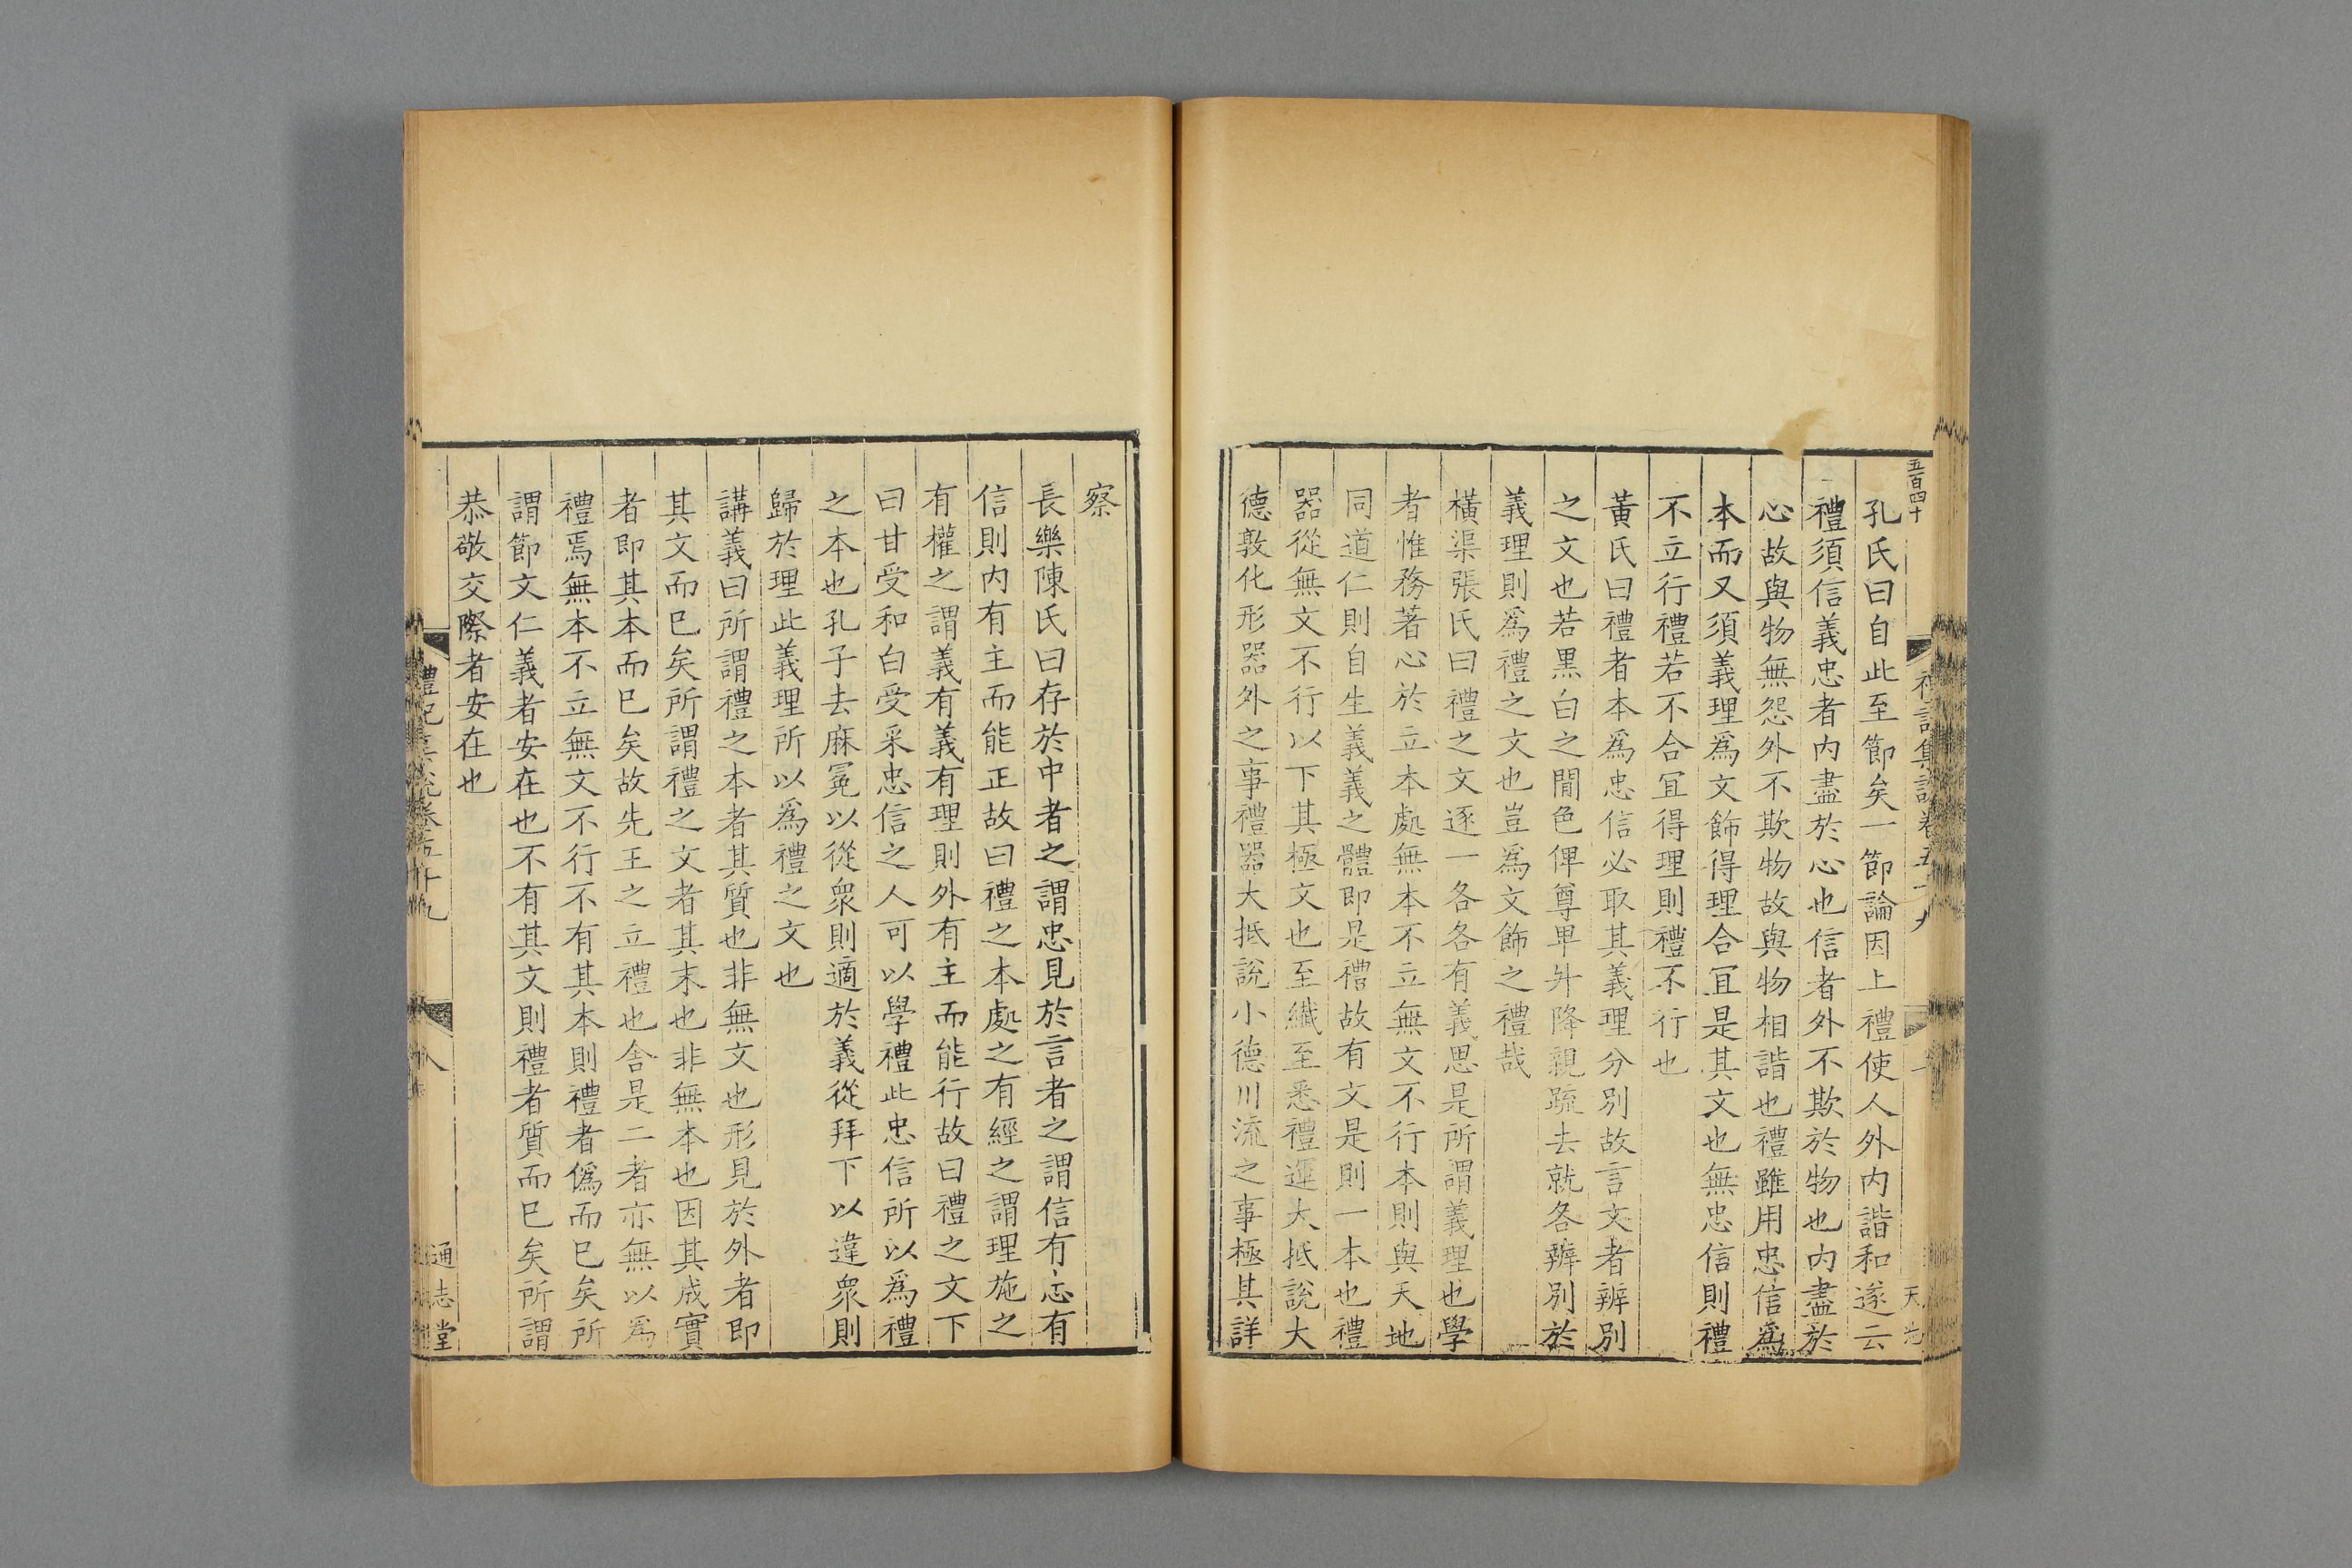 五百四十
禮記集說卷五十九
天
孔氏曰自此至節矣一節論因上禮使人外內諧和遂云
禮須信義忠者內盡於心也信者外不欺於物也內盡於
心故與物無怨外不欺物故與物相諧也禮雖用忠信爲
本而又須義理爲文飾得理合宜是其文也無忠信則禮
不立行禮若不合宜得理則禮不行也
黃氏曰禮者本爲忠信必取其義理分別故言文者辨別
之文也若黑白之閒色俾尊卑升降親疏去就各辨別於
義理則爲禮之文也豈爲文飾之禮哉
橫渠張氏曰禮之文逐一各各有義思是所謂義理也學
者惟務著心於立本處無本不立無文不行本則與天地
同道仁則自生義義之體即是禮故有文是則一本也禮
器從無文不行以下其極文也至纎至悉禮運大抵說大
德敦化形器外之事禮器大抵說小德川流之事極其詳
察
長樂陳氏曰存於中者之謂忠見於言者之謂信有忘有
信則內有主而能正故曰禮之本處之有經之謂理施之
有權之謂義有義有理則外有主而能行故曰禮之文下
曰甘受和白受采忠信之人可以學禮此忠信所以爲禮
之本也孔子去麻冕以從衆則適於義從拜下以違衆則
歸於理此義理所以爲禮之文也
講義曰所謂禮之本者其質也非無文也形見於外者即
其文而已矣所謂禮之文者其末也非無本也因其成實
者即其本而已矣故先王之立禮也舍是二者亦無以爲
禮焉無本不立無文不行不有其本則禮者僞而已矣所
謂節文仁義者安在也不有其文則禮者質而已矣所謂
恭敬交際者安在也
禮記集說卷五十九
八
通志堂